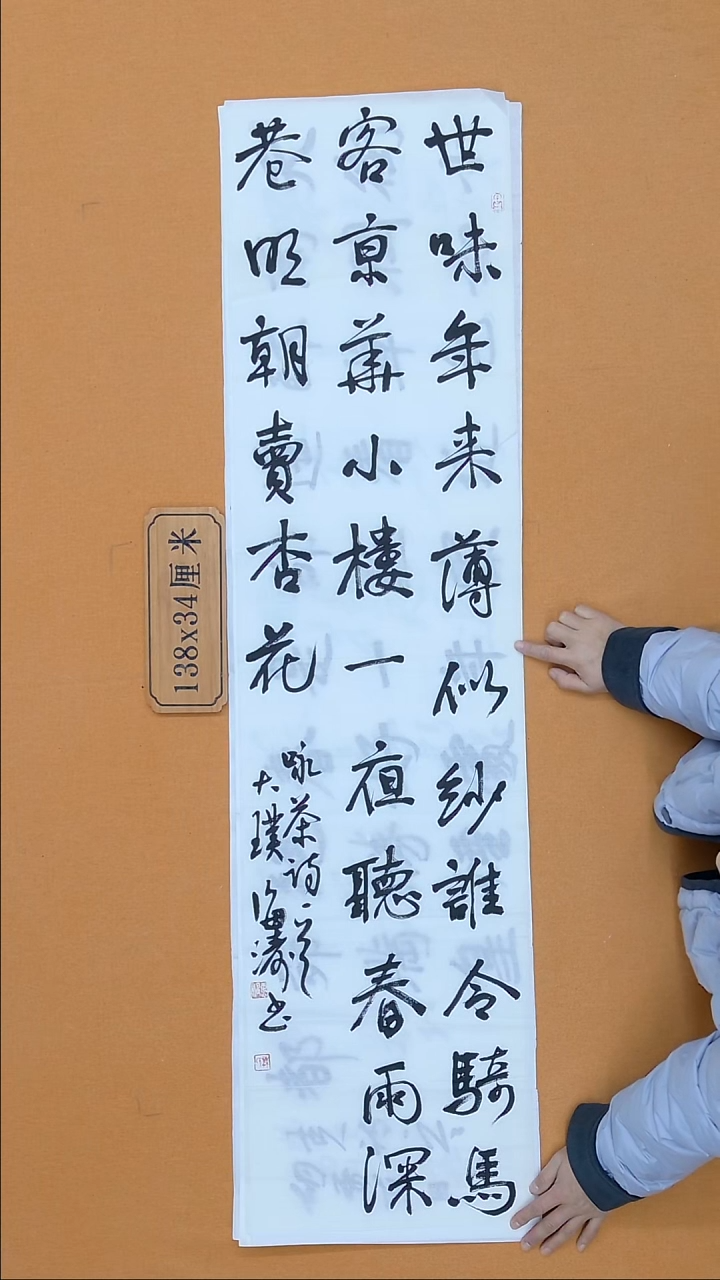 世味年来薄似纱誰令騎馬
客京華小樓一夜聽春雨深
巷明朝賣杏花
詠茶诗一首
大璞海濤书
138x34厘米